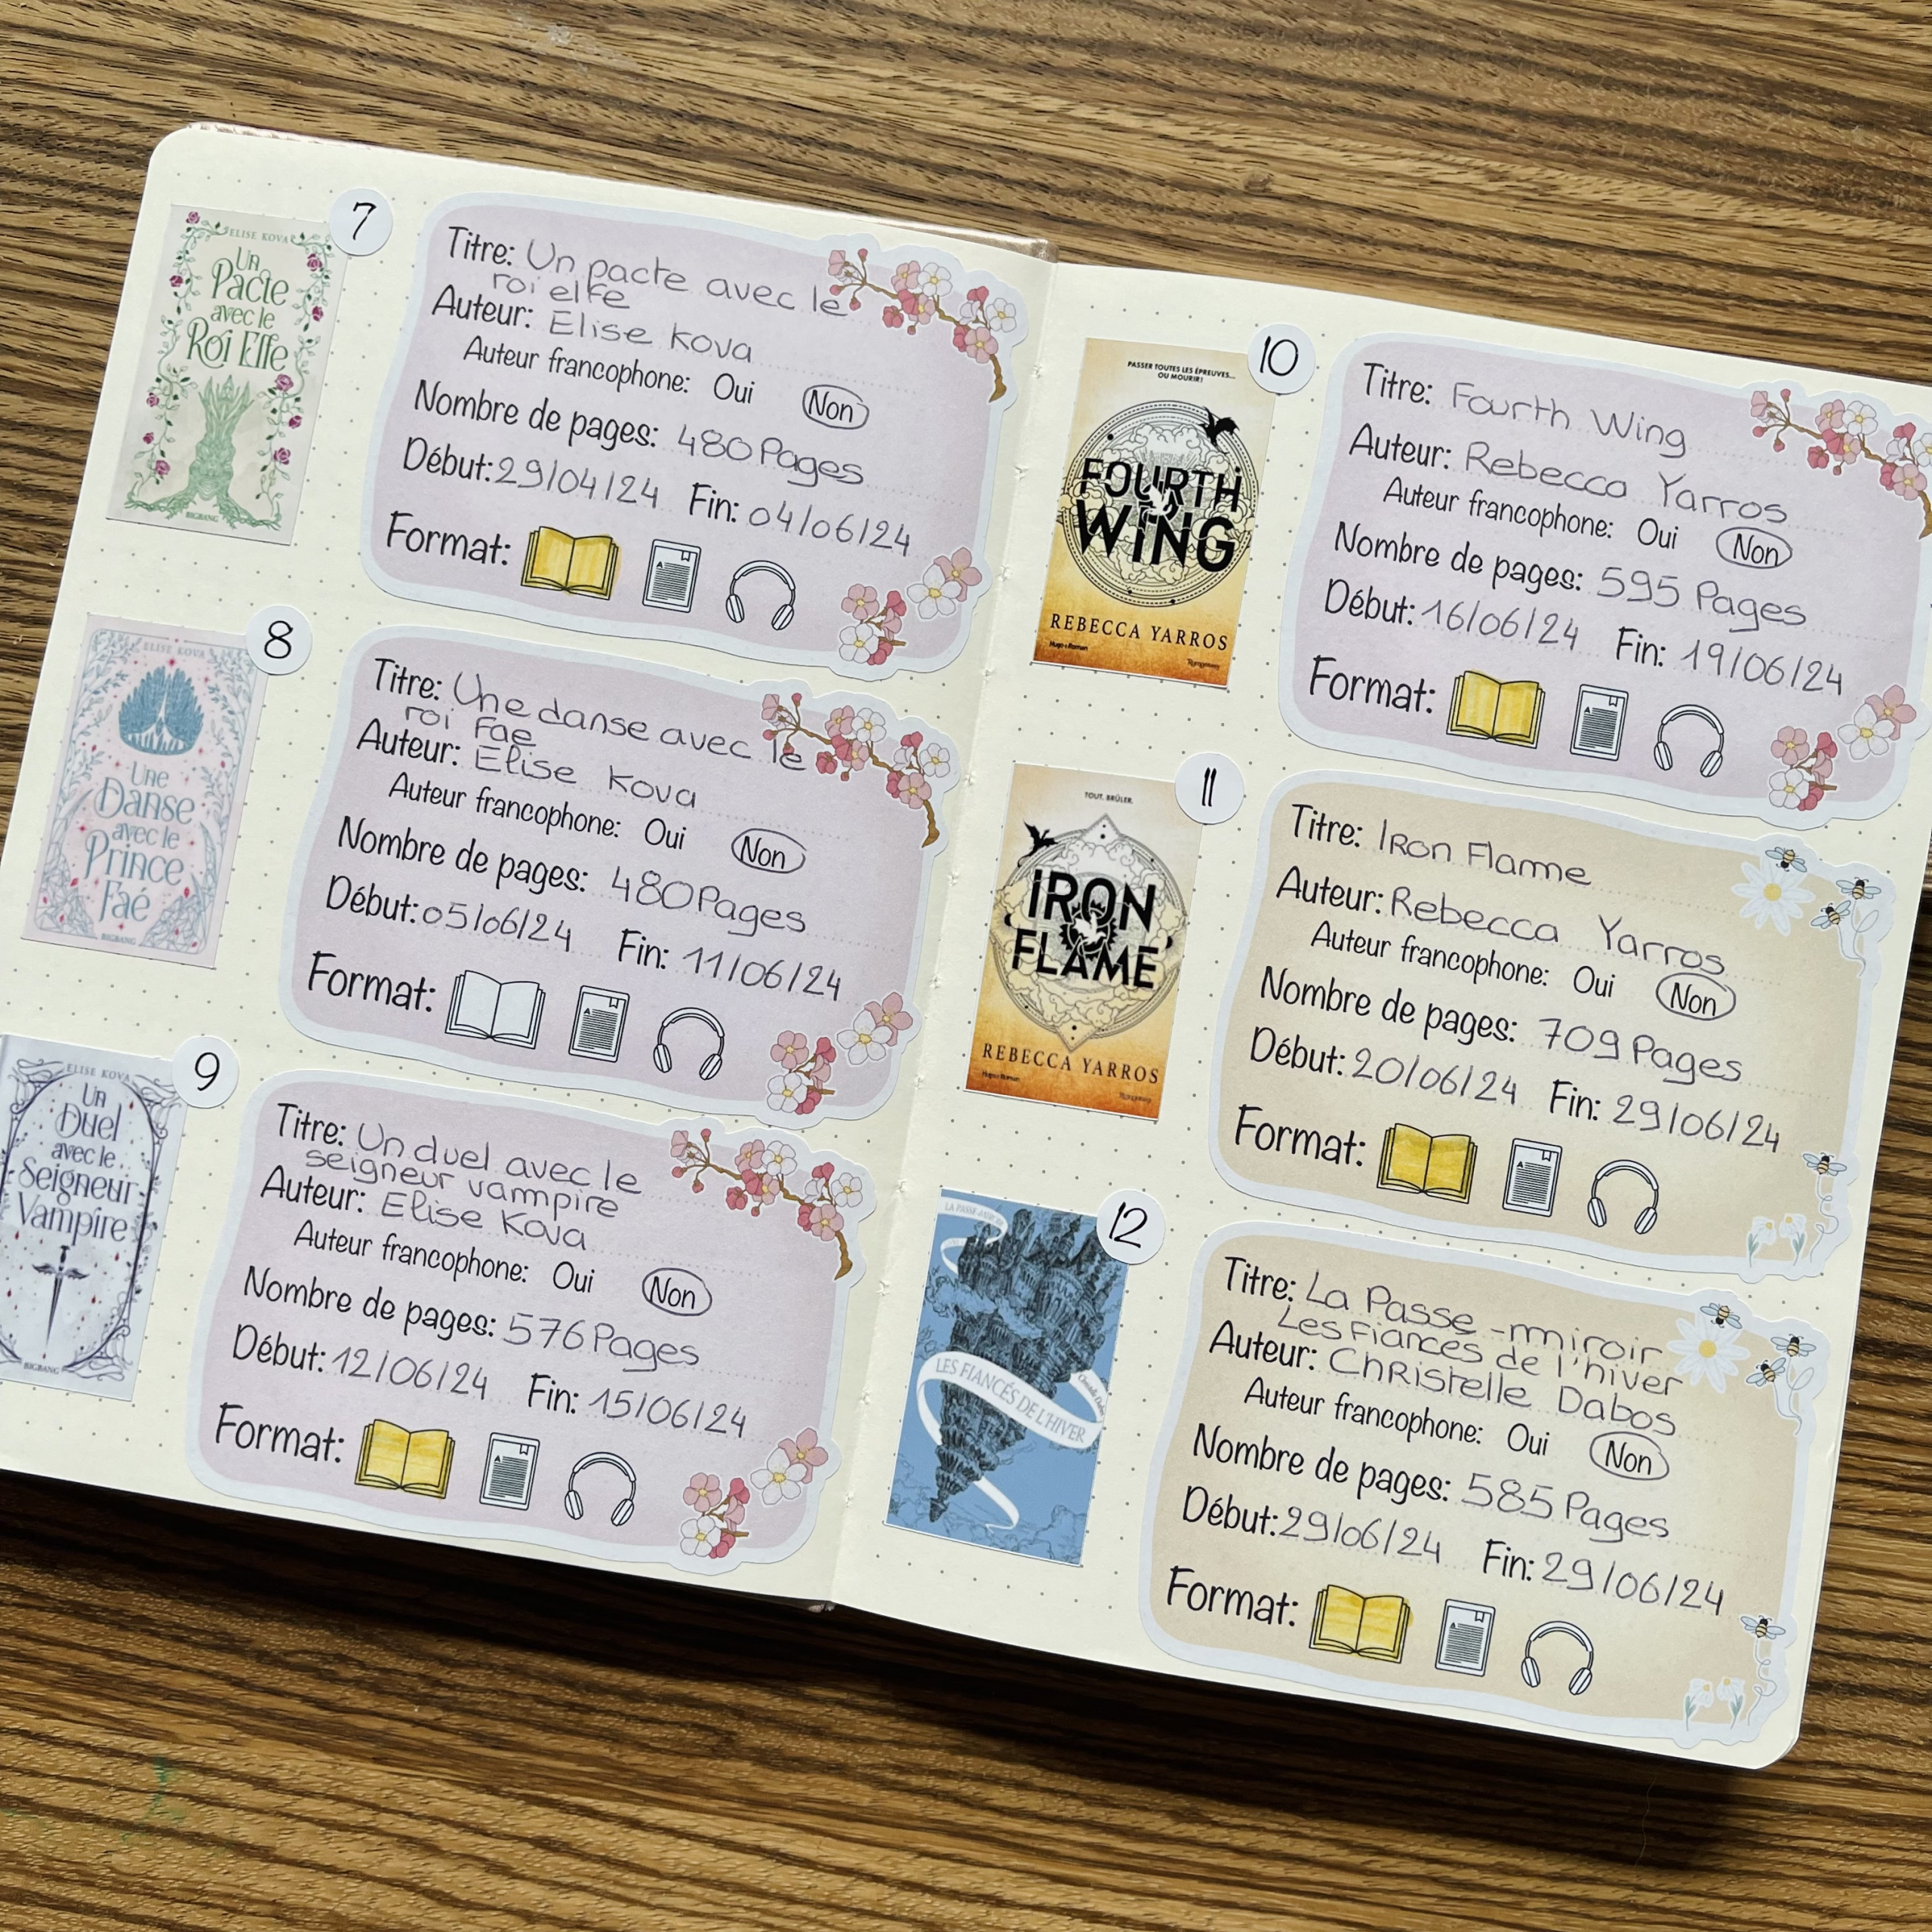 7
ELISE KOVA
Un
Pacte
avec le
Roi Elfe
BIGBANG
Titre: Un pacte avec le
roi elfe
Auteur: Elise Kova
Auteur francophone: Oui Non
Nombre de pages: 480 Pages
Début: 29/04/24 Fin: 04/06/24
Format:
8
ELISE KOVA
Une
Danse
avec le
Prince
Faé
BIGBANG
Titre: Une danse avec le
roi Fae
Auteur: Elise Kova
Auteur francophone: Oui Non
Nombre de pages: 480 Pages
Début: 05/06/24 Fin: 11/06/24
Format:
9
ELISE KOVA
Un
Duel
avec le
Seigneur
Vampire
BIGBANG
Titre: Un duel avec le
seigneur vampire
Auteur: Elise Kova
Auteur francophone: Oui Non
Nombre de pages: 576 Pages
Début: 12/06/24 Fin: 15/06/24
Format:
10
PASSER TOUTES LES ÉPREUVES...
OU MOURIR!
FOURTH
WING
REBECCA YARROS
Hugo Roman
Titre: Fourth Wing
Auteur: Rebecca Yarros
Auteur francophone: Oui Non
Nombre de pages: 595 Pages
Début: 16/06/24 Fin: 19/06/24
Format:
11
TOUT. BRÛLER.
IRON
FLAME
REBECCA YARROS
Hugo Roman
Titre: Iron Flame
Auteur: Rebecca Yarros
Auteur francophone: Oui Non
Nombre de pages: 709 Pages
Début: 20/06/24 Fin: 29/06/24
Format:
12
LA PASSE-MIROIR
LES FIANCÉS DE L'HIVER
Christelle Dabos
Titre: La Passe-miroir
Les Fiancés de l'hiver
Auteur: Christelle Dabos
Auteur francophone: Oui Non
Nombre de pages: 585 Pages
Début: 29/06/24 Fin: 29/06/24
Format: